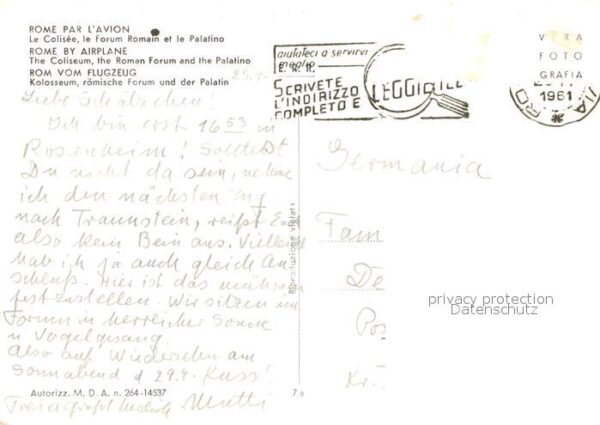 ROME PAR L'AVION
Le Colisée, le Forum Romain et le Palatino
ROME BY AIRPLANE
The Coliseum, the Roman Forum and the Palatino
ROM VOM FLUGZEUG
Kolosseum, römische Forum und der Palatin
aiutateci a servirvi
meglio
SCRIVETE
L'INDIRIZZO
COMPLETO E
LEGGIBILE
VERA
FOTO
GRAFIA
1961
ROMA
Liebe Schätzchen!
Ich bin erst 16 53 in
Rosenheim! Solltest
Du nicht da sein, nehme
ich den nächsten Zug
nach Traunstein, reißt Euch
also kein Bein aus. Vielleicht
hab ich ja auch gleich An
schluß. Hier ist das mühsam
festzustellen. Wir sitzen im
Forum in herrlicher Sonne
u Vogelgesang.
Also auf Wiedersehen am
Sonnabend d 29.4. Kuss!
Mutti
Germania
Fam
De
Pos
Kr.
Riproduzione vietata
privacy protection
Datenschutz
Autorizz. M. D. A. n. 264-14537
7